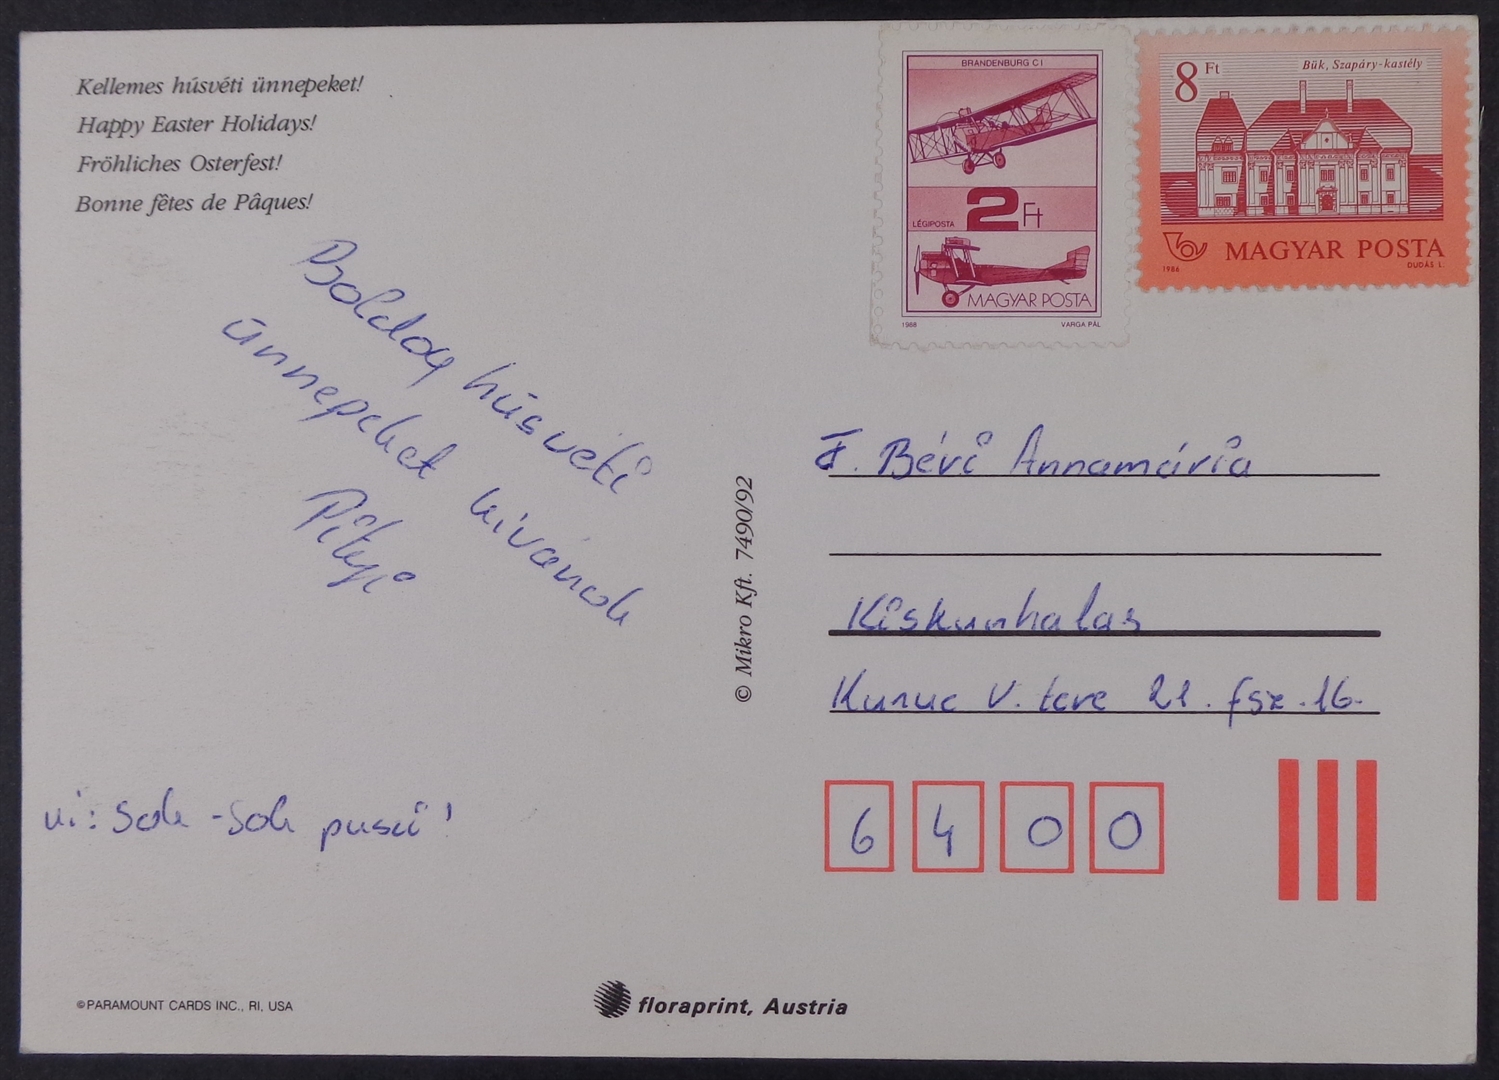 Kellemes húsvéti ünnepeket!
Happy Easter Holidays!
Fröhliches Osterfest!
Bonne fêtes de Pâques!
Boldog húsvéti
ünnepeket kívánok
Pityi
ui: Sok-sok puszi!
©PARAMOUNT CARDS INC., RI, USA
floraprint, Austria
© Mikro Kft. 7490/92
BRANDENBURG C I
LÉGIPOSTA
2 Ft
MAGYAR POSTA
1988
VARGA PÁL
8 Ft
Bük, Szapáry-kastély
MAGYAR POSTA
1986
DUDÁS L.
F. Bévi Annamária
Kiskunhalas
Kunuc V. tere 21. fsz. 16.
6400